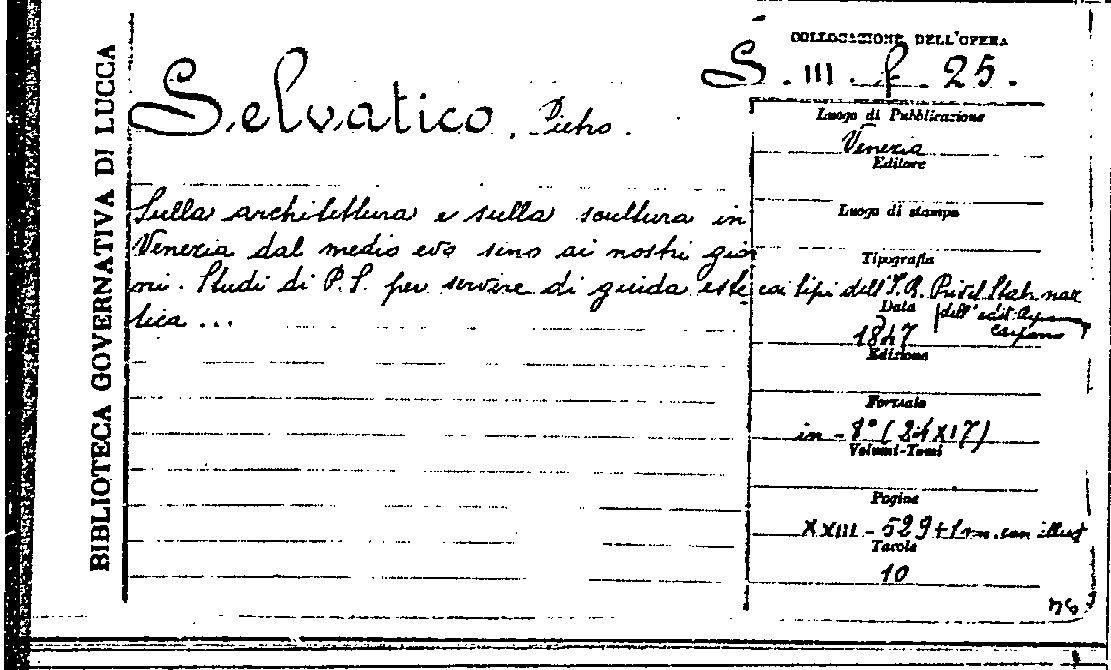 BIBLIOTECA GOVERNATIVA DI LUCCA
Selvatico. Pietro.
Sulla architettura e sulla scultura in
Venezia dal medio evo sino ai nostri gior
ni. Studi di P.S. per servire di guida este
tica...
COLLOCAZIONE DELL'OPERA
S. III. f. 25.
Luogo di Pubblicazione
Venezia
Editore
Luogo di stampa
Tipografia
coi tipi dell'I. R. Priv. Stab. naz
dell'edit.
Data
1847
Edizione
Formato
in-8° (24x17)
Volumi-Tomi
Pagine
XXIII-529+1 nn. con illust
Tavole
10